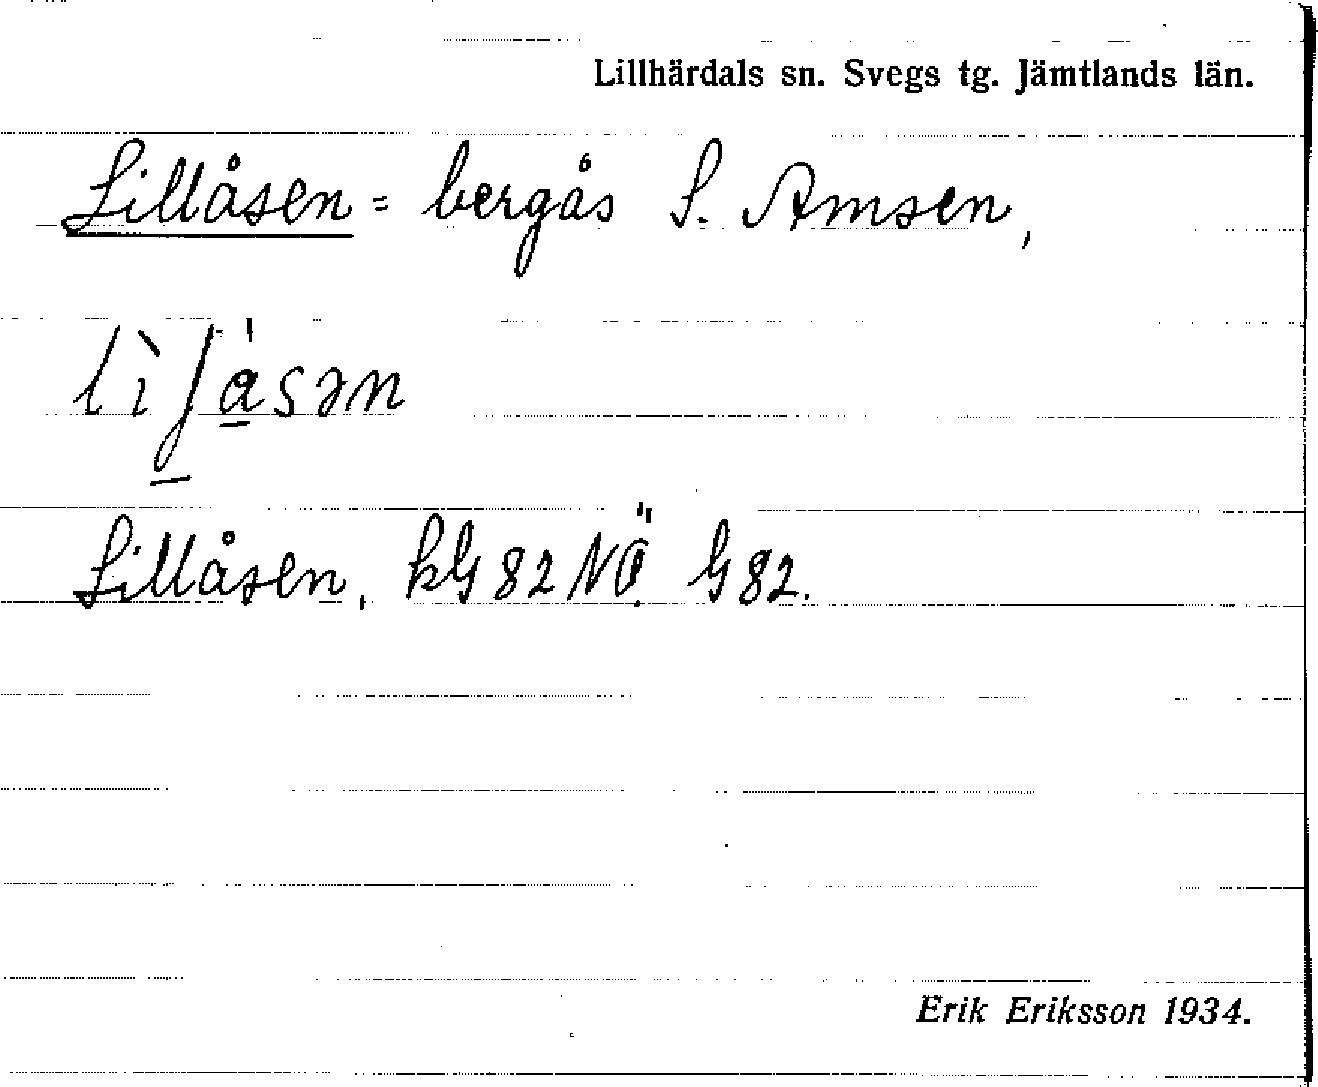 Lillhärdals sn. Svegs tg. Jämtlands län.
Lillåsen = bergås S. Amsen,
Lillåsen, kG 82 NÖ. G 82.
Erik Eriksson 1934.